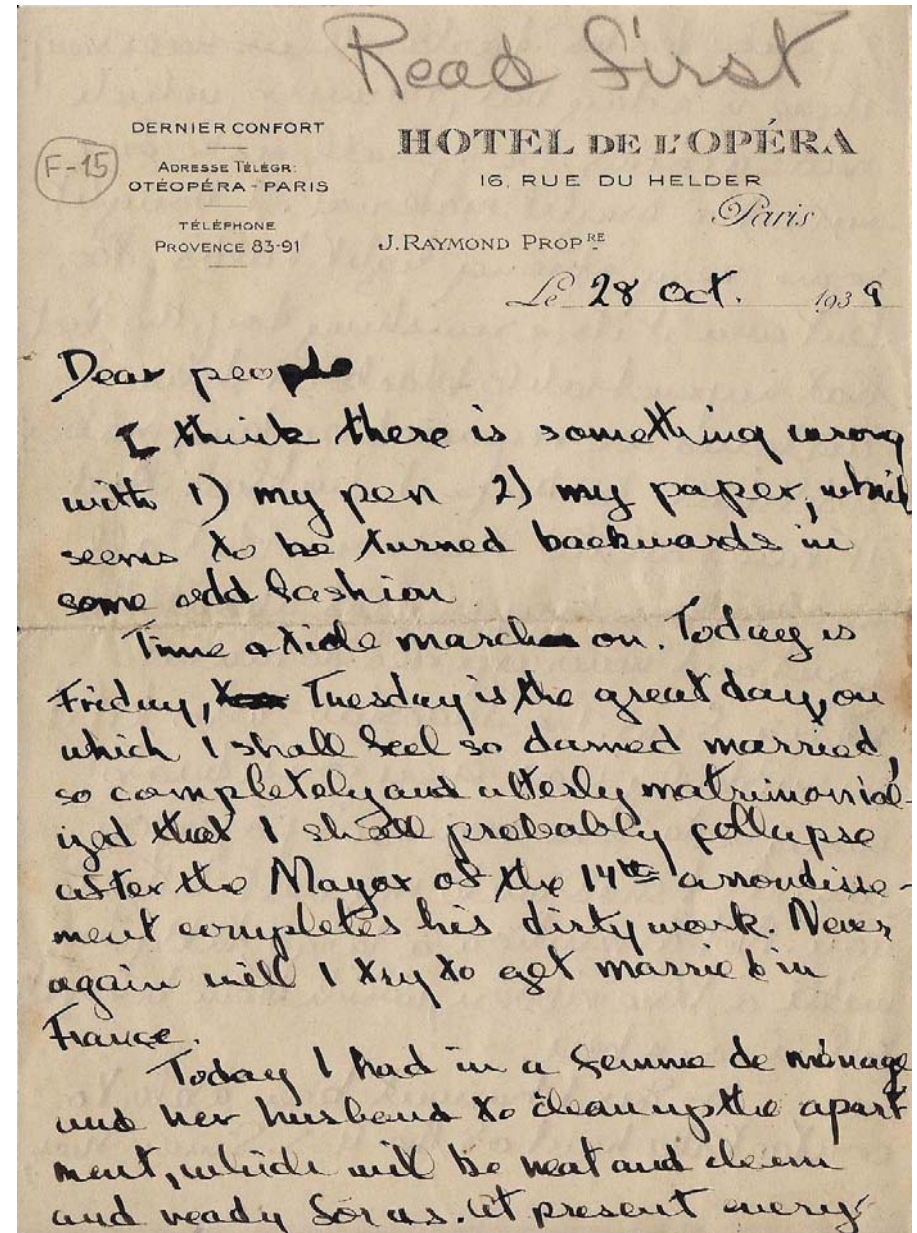 Read First
DERNIER CONFORT
ADRESSE TÉLÉGR:
OTÉOPÉRA-PARIS
TÉLÉPHONE
PROVENCE 83-91
F-15
HOTEL DE L'OPÉRA
16, RUE DU HELDER
Paris
J. RAYMOND PROPRE
Le 28 Oct. 1939
Dear people
I think there is something wrong
with 1) my pen 2) my paper, which
seems to be turned backwards in
some odd fashion
Time & tide march on. Today is
Friday, Tuesday is the great day, on
which I shall feel so damed married,
so completely and utterly matrimonial-
ized that I shall probably collapse
after the Mayor of the 14th arrondisse-
ment completes his dirty work. Never
again will I try to get married in
France.
Today I had in a femme de ménage
and her husband to clean up the apart
ment, which will be neat and clean
and ready for us. At present every-